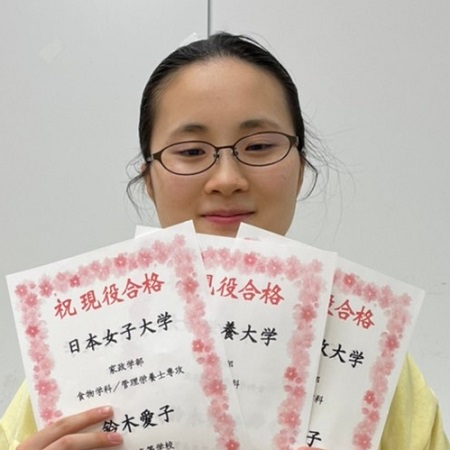 祝 現役合格
日本女子大学
家政学部
食物学科/管理栄養士専攻
鈴木愛子
等学校
現役合格
養大学
科
役合格
大学
科
子